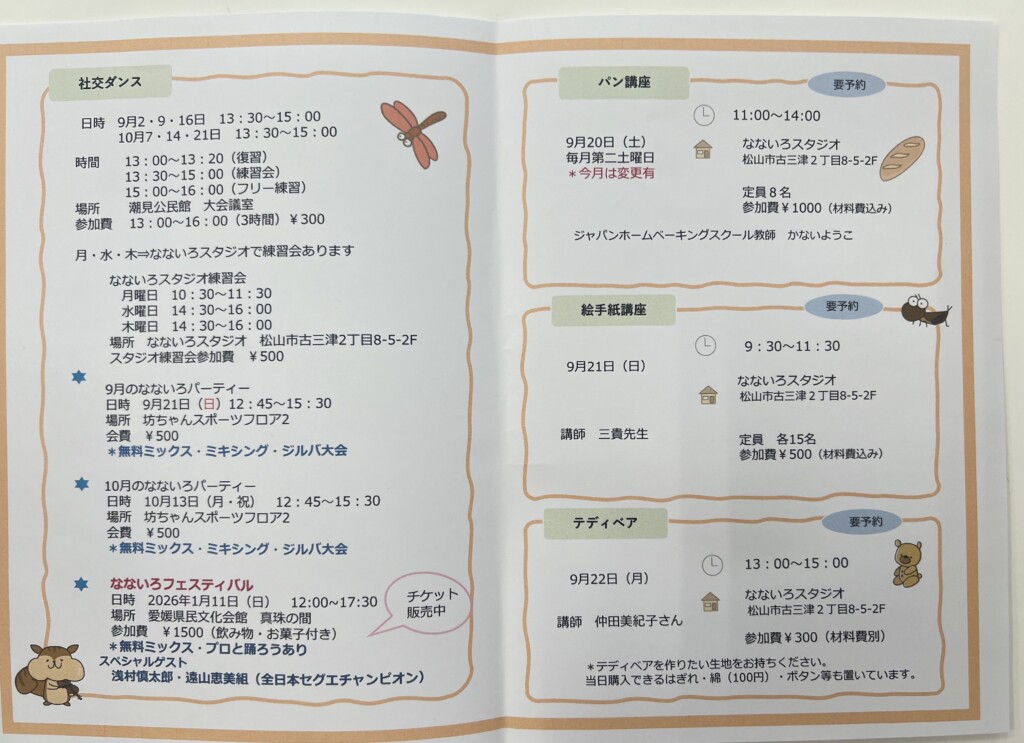 社交ダンス
日時　9月2・9・16日　13：30～15：00
10月7・14・21日　13：30～15：00
時間　13：00～13：20（復習）
13：30～15：00（練習会）
15：00～16：00（フリー練習）
場所　潮見公民館　大会議室
参加費　13：00～16：00（3時間）￥300
月・水・木⇒なないろスタジオで練習会あります
なないろスタジオ練習会
月曜日　10：30～11：30
水曜日　14：30～16：00
木曜日　14：30～16：00
場所　なないろスタジオ　松山市古三津2丁目8-5-2F
スタジオ練習会参加費　￥500
9月のなないろパーティー
日時　9月21日（日）12：45～15：30
場所　坊ちゃんスポーツフロア2
会費　￥500
＊無料ミックス・ミキシング・ジルバ大会
10月のなないろパーティー
日時　10月13日（月・祝）　12：45～15：30
場所　坊ちゃんスポーツフロア2
会費　￥500
＊無料ミックス・ミキシング・ジルバ大会
なないろフェスティバル
日時　2026年1月11日（日）　12:00~17:30
場所　愛媛県民文化会館　真珠の間
参加費　￥1500（飲み物・お菓子付き）
＊無料ミックス・プロと踊ろうあり
スペシャルゲスト
浅村慎太郎・遠山恵美組（全日本セグエチャンピオン）
チケット
販売中
パン講座
要予約
11:00～14:00
9月20日（土）
毎月第二土曜日
＊今月は変更有
なないろスタジオ
松山市古三津２丁目8-5-2F
定員８名
参加費￥1000（材料費込み）
ジャパンホームベーキングスクール教師　かないようこ
絵手紙講座
要予約
9：30～11：30
9月21日（日）
なないろスタジオ
松山市古三津２丁目8-5-2F
講師　三貴先生
定員　各15名
参加費￥500（材料費込み）
テディベア
要予約
13：00～15：00
9月22日（月）
なないろスタジオ
松山市古三津２丁目8-5-2F
講師　仲田美紀子さん
参加費￥300（材料費別）
＊テディベアを作りたい生地をお持ちください。
当日購入できるはぎれ・綿（100円）・ボタン等も置いています。